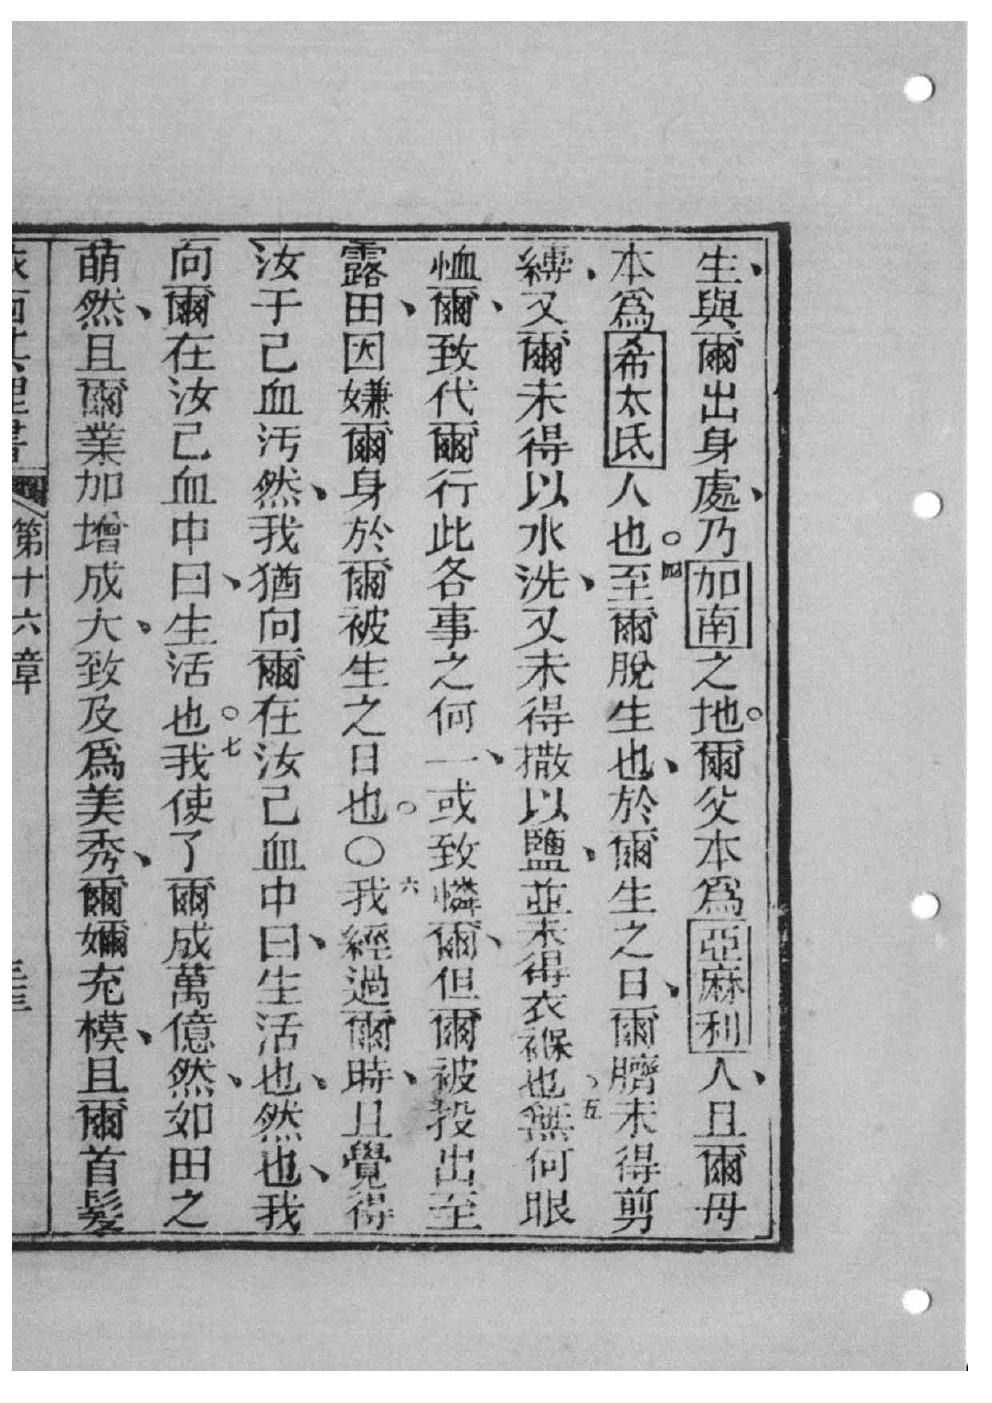 生、與爾出身處、乃加南之地。爾父本為亞麻利人、且爾母
本為希太氐人也。四至爾脫生也、於爾生之日、爾臍未得剪
縛、又爾未得以水洗、又未得撒以鹽、並未得衣褓也、五無何眼
恤爾、致代爾行此各事之何一、或致憐爾、但爾被投出至
露田、因嫌爾身於爾被生之日也。○六我經過爾時、且覺得
汝于己血汚然、我猶向爾在汝己血中曰、生活也、然也、我
向爾在汝己血中曰、生活也。七我使了爾成萬億然、如田之
萌然、且爾業加增成大、致及為美秀、爾嬭充模、且爾首髮
書 第十六章